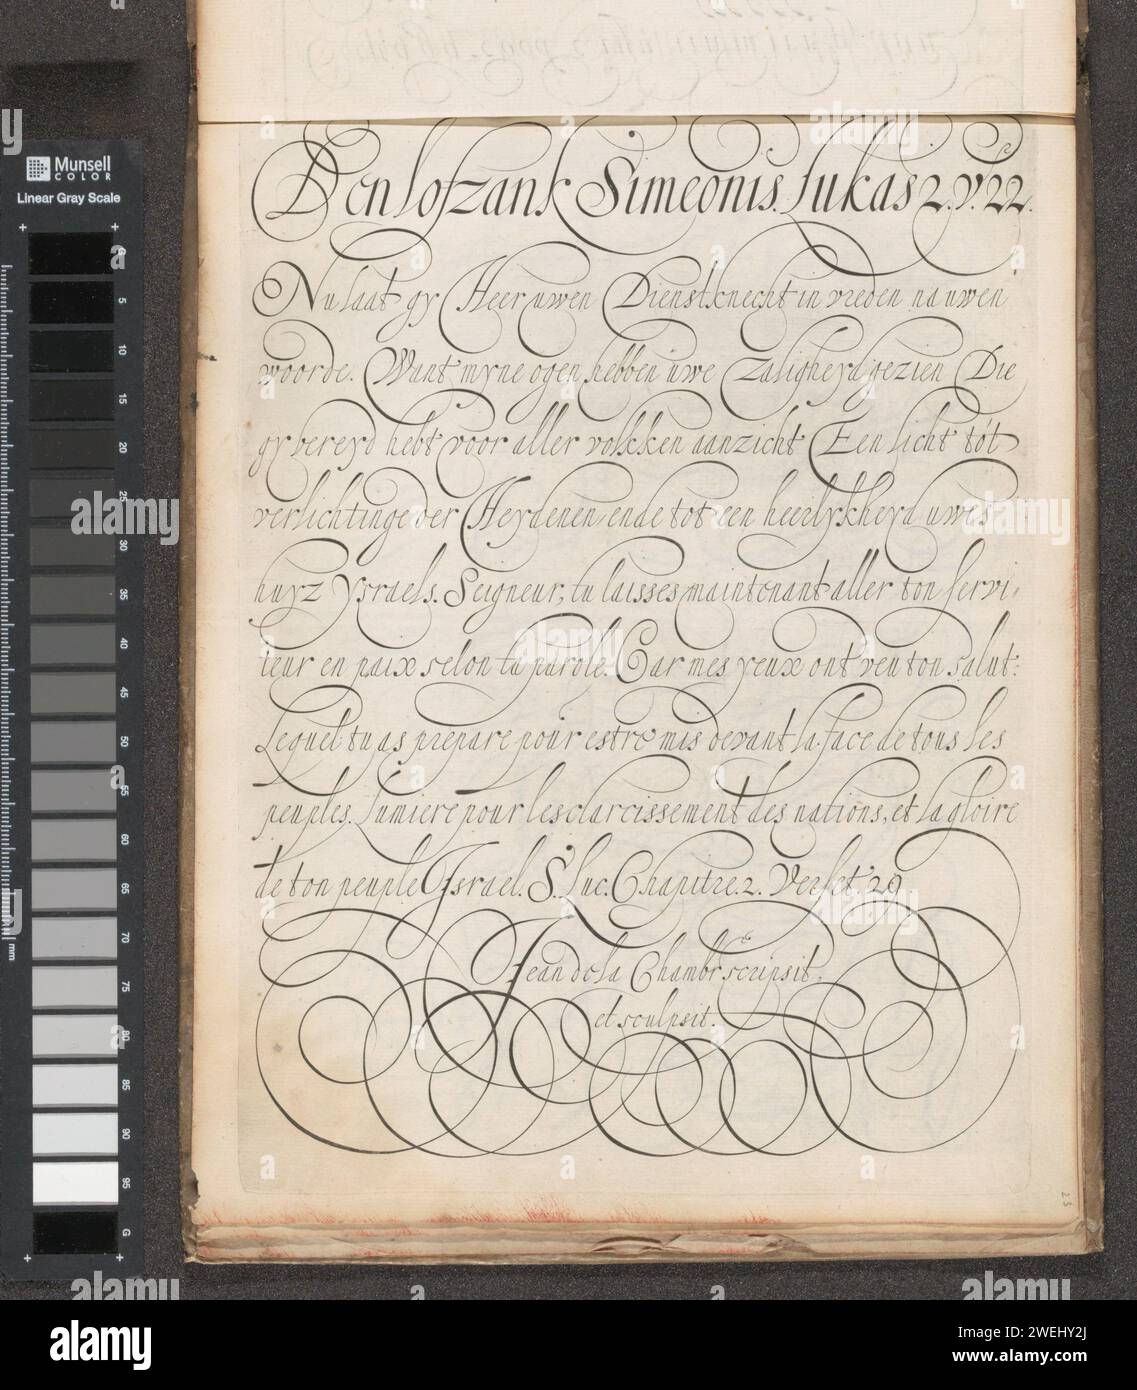 Den lofzank Simeonis. Lukas 2. V. 22.
Nu laat gy Heer uwen Dienstknecht in vreden na uwen
woorde. Want myne ogen hebben uwe Zaligheyd gezien Die
gy bereyd hebt voor aller volkken aanzicht Een licht tót
verlichtinge der Heydenen, ende tot een heerlykheyd uwes
huyz Ysraels. Seigneur, tu laisses maintenant aller ton servi-
teur en paix selon ta parole. Car mes yeux ont veu ton salut:
Lequel tu as prepare pour estre mis devant la face de tous les
peuples. Lumiere pour lesclarcissement des nations, et la gloire
de ton peuple Israel. S. Luc. Chapitre. 2. Verset. 29.
Jean de la Chambr. scripsit.
et sculpsit.
25
Munsell
COLOR
Linear Gray Scale
5
10
15
20
25
30
35
40
45
50
55
60
65
70
75
80
85
90
95
G
mm
alamy
Image ID: 2WEHY2J
www.alamy.com